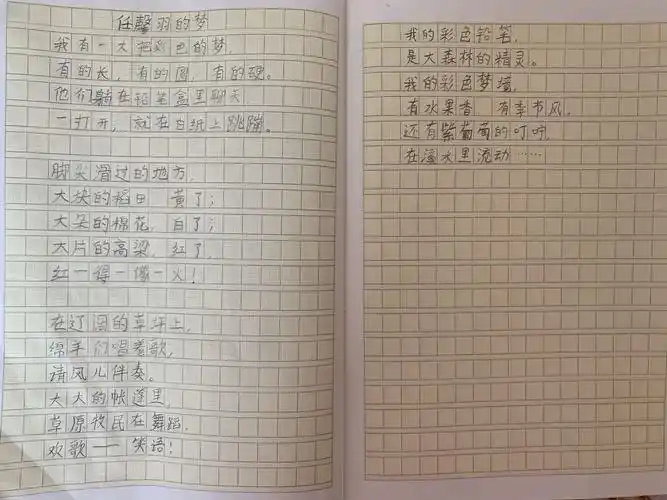 任馨羽的梦
我有一大把彩色的梦,
有的长,有的圆,有的硬。
他们躺在铅笔盒里聊天,
一打开,就在白纸上跳蹦。
脚尖滑过的地方,
大块的稻田 黄了;
大朵的棉花,白了;
大片的高梁,红了,
红一得一像一火!
在辽阔的草坪上,
绵羊们唱着歌,
请风儿伴奏。
大大的帐篷里,
草原牧民在舞蹈,
欢歌——笑语!
我的彩色铅笔,
是大森林的精灵。
我的彩色梦境,
有水果香 有季节风,
还有紫葡萄的叮咛,
在溪水里流动……